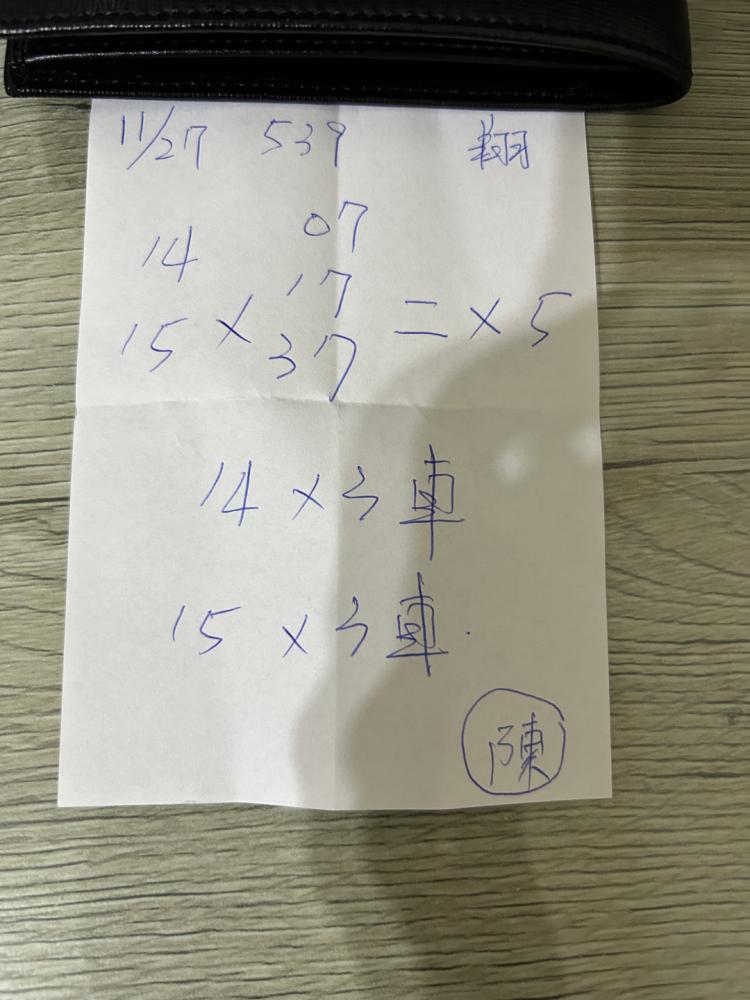 11/27 539 翔
14 07
17
15 × 37 二 × 5
14 × 3 車
15 × 3 車.
陳